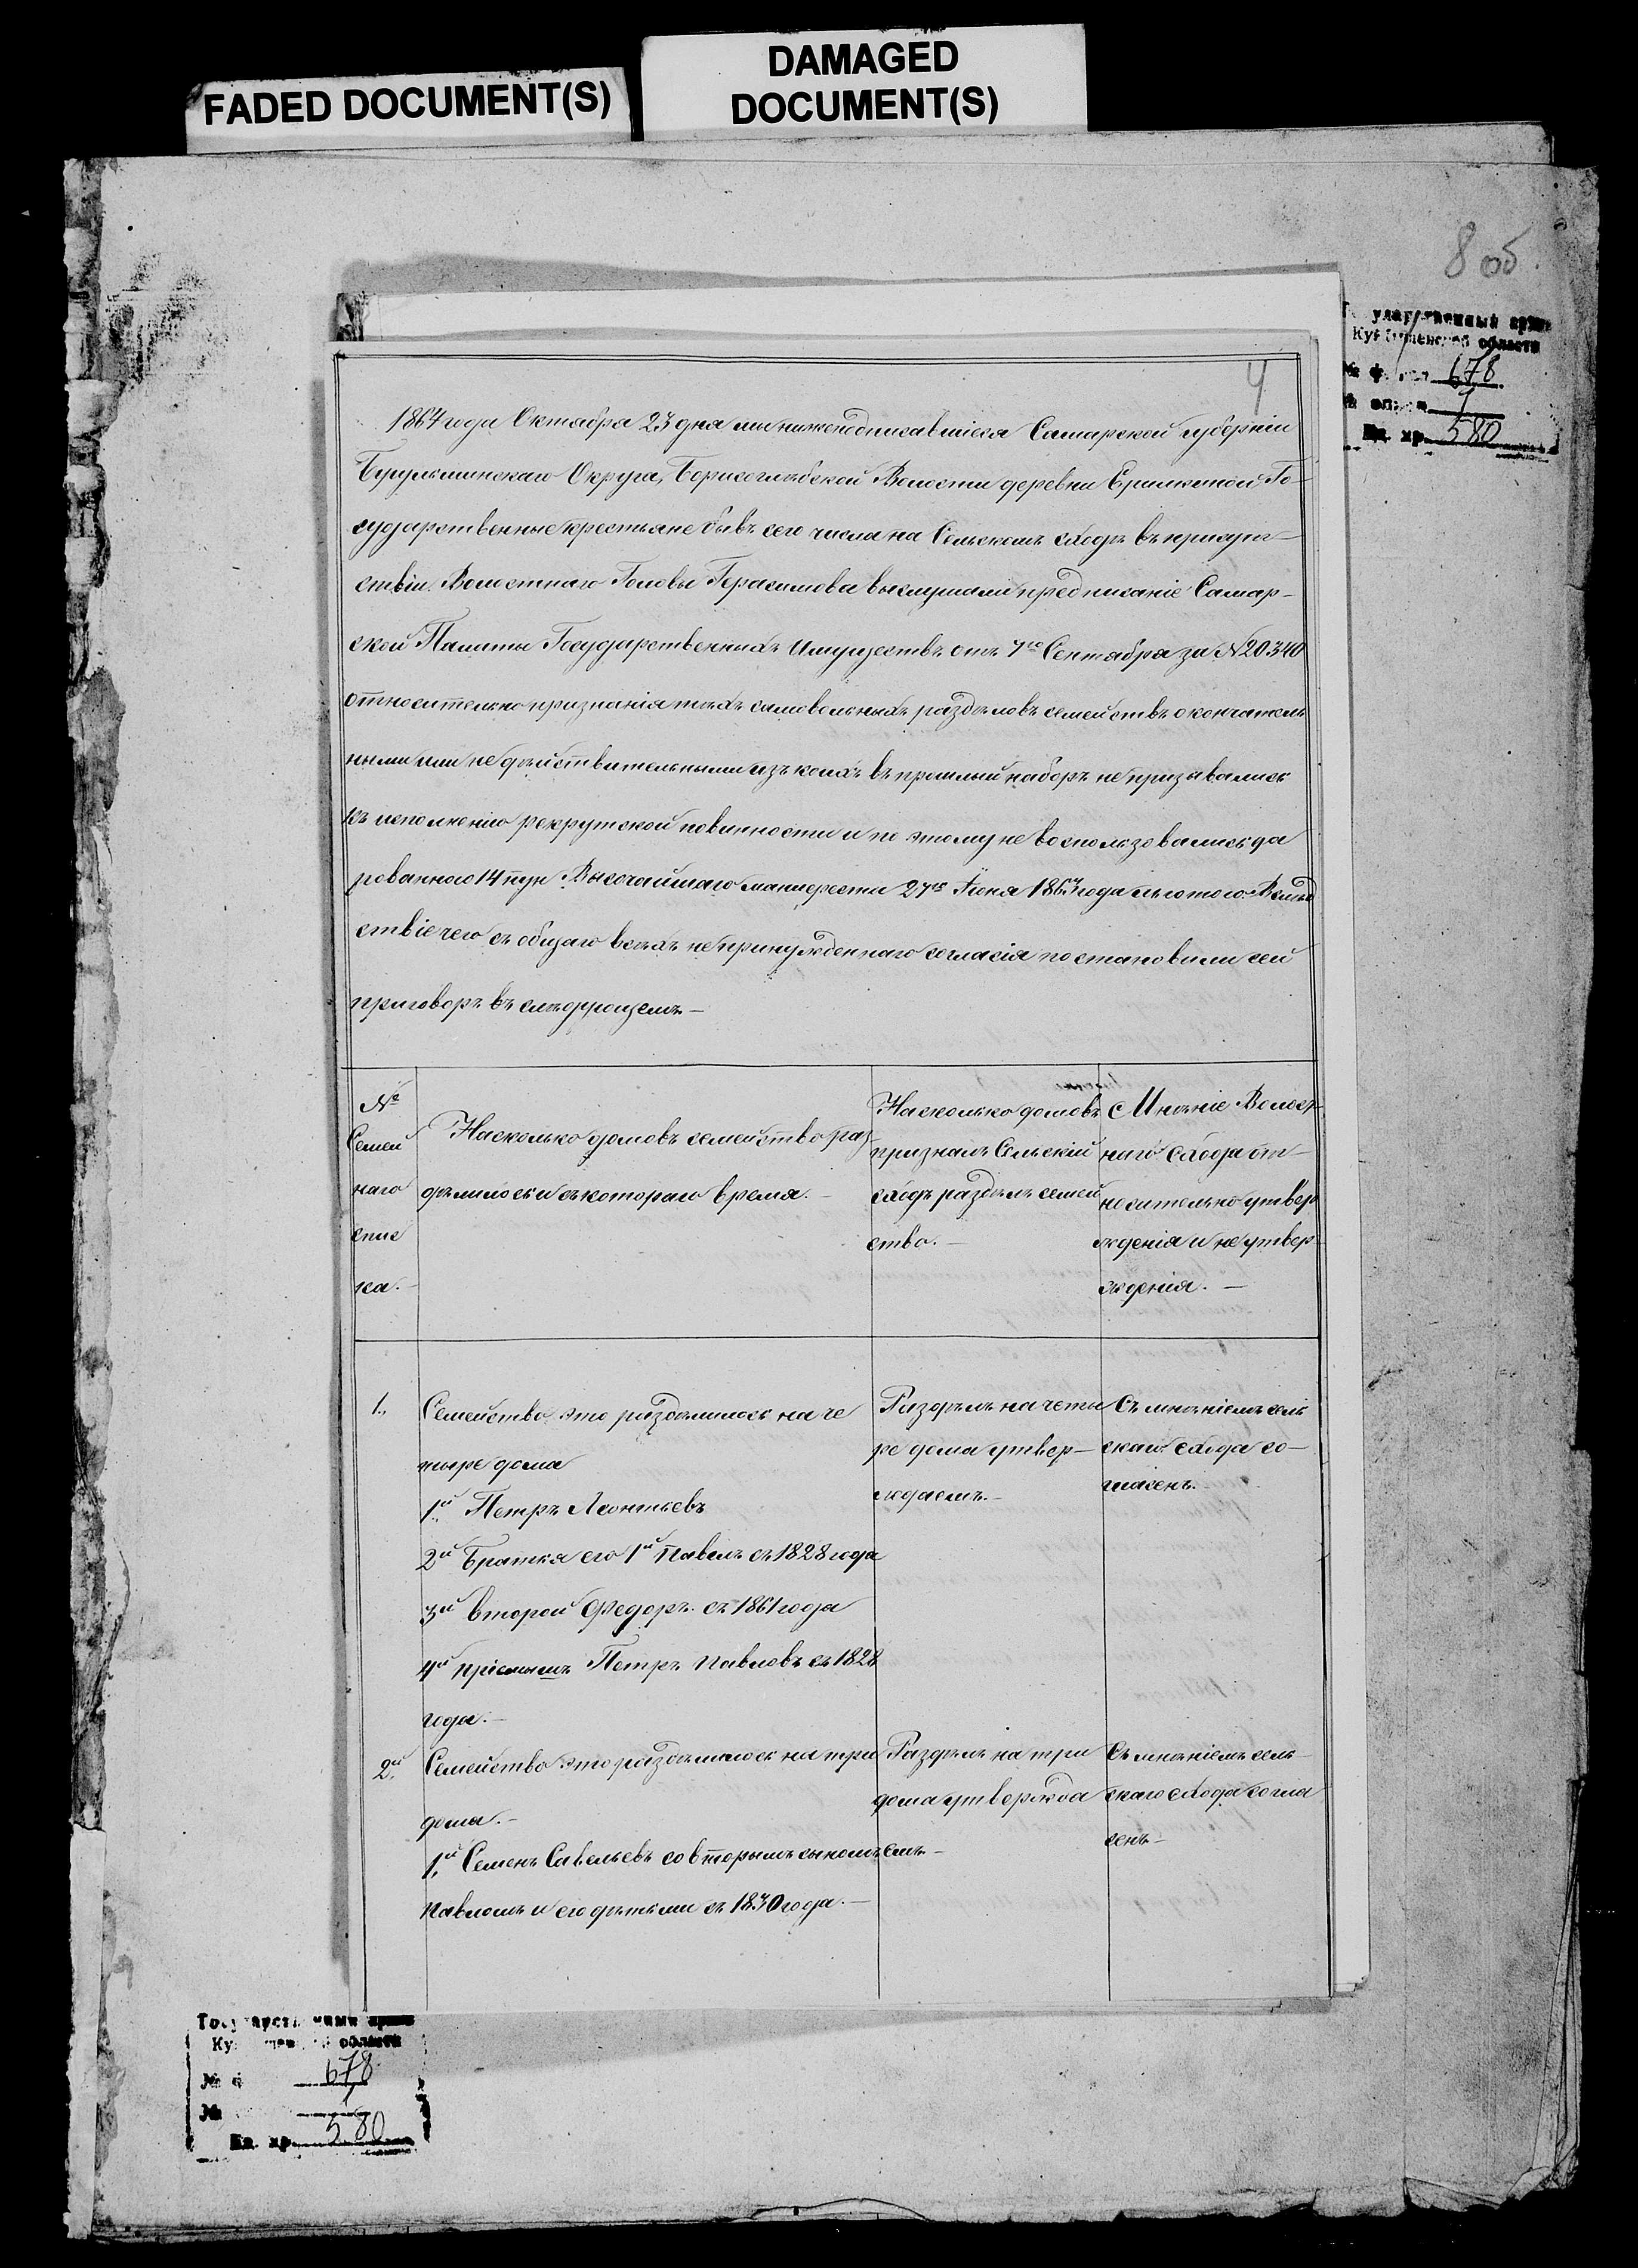 FADED DOCUMENT(S)
DAMAGED
DOCUMENT(S)
8 об.
Государственный архив
Куйбышевской области
№ фонда 678
№ описи 1
Ед. хр. 580
4
1864 года Октября 23 дня мы нижеподписавшіеся Самарской губерніи
Бугульминскаго Округа, Борисоглѣбской Волости деревни Ерилкиной Го-
сударственные крестьяне бывъ сего числа на Сельскомъ сходѣ въ присут-
ствіи Волостнаго Головы Герасимова выслушали предписаніе Самар-
ской Палаты Государственныхъ Имуществъ отъ 7го Сентября за №20340
относительно признанія тѣхъ самовольныхъ раздѣловъ семействъ окончатель
ными или не дѣйствительными изъ коихъ въ прошлый наборъ не призывались
къ исполненію рекрутской повинности и по этому не воспользовались да
рованною 14 пун Высочайшаго манифеста 27го Іюня 1863 года льготою. Вслѣд
ствіе чего съ общаго всѣхъ не принужденнаго согласія постановили сей
приговоръ въ слѣдующемъ —
№
Семей
наго
спис
ка. —
На сколько домовъ семейство раз
дѣлилось и съ котораго время. —
На сколько домовъ
призналъ Сельскій
сходъ раздѣлъ семей
ство. —
Мнѣніе Волост-
наго схода от-
носительно утвер
жденія и не утвер-
жденія. —
1., Семейство это раздѣлилось на че
тыре дома
1й Петръ Леонтьевъ
2й Братья его 1й Павелъ съ 1828 года
3й второй Федоръ съ 1861 года
4й пріемышъ Петръ Павловъ съ 1828
года. —
Раздѣлъ на четы
ре дома утвер-
ждаемъ. —
Съ мнѣніемъ сель
скаго схода со-
гласенъ. —
2й Семейство это раздѣлилось на три
дома. —
1й Семенъ Савельевъ со вторымъ сыномъ
Павломъ и его дѣтьми съ 1830 года. —
Раздѣлъ на три
дома утвержда
емъ —
Съ мнѣніемъ сель-
скаго схода согла
сенъ —
Государственный архив
Куйбышевской области
№ ф 678
№ 1
Ед. хр. 580